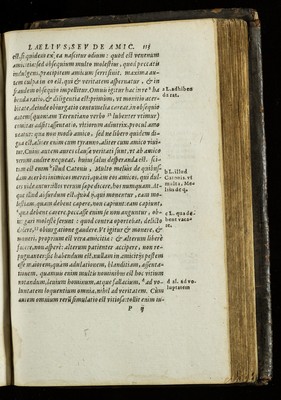 LAELIVS, SEV DE AMIC. 115
est, siquidem ex ea nascitur odium: quod est venenum
amicitiæ: sed obsequium multo molestius, quod peccatis
indulgens, præcipitem amicum ferri sinit. maxima au-
tem culpa in eo est, qui & veritatem aspernatur, & in
fraudem obsequio impellitur. Omni igitur hac in re a ha
benda ratio, & diligentia est: primùm, vt monitio acer-
bitate, deinde obiurgatio contumelia careat. in obsequio
autem (quoniam Terentiano verbo lubenter vtimur)
comitas adsit: assentatio, vitiorum adiutrix, procul amo
ueatur: quæ non modò amico, sed ne libero quidem di-
gna est. aliter enim cum tyranno, aliter cum amico viui-
tur. Cuius autem aures clausæ veritati sunt, vt ab amico
verum audire nequeat, huius salus desperanda est. sci-
tum est enim b illud Catonis, Multo melius de quibus-
dam acerbos inimicos mereri, quàm eos amicos, qui dul-
ces videantur: illos verum sæpe dicere, hos nunquam. At-
que illud absurdum est, quòd ij, qui monentur, eam mo-
lestiam, quam debent capere, non capiunt: eam capiunt,
c qua debent carere. peccasse enim se non anguntur, ob-
iurgari molestè ferunt: quod contra oportebat, delicto
dolere, obiurgatione gaudere. Vt igitur & monere, &
moneri, proprium est veræ amicitiæ: & alterum liberè
facere, non asperè: alterum patienter accipere, non re-
pugnanter: sic habendum est, nullam in amicitijs pestem
esse maiorem, quàm adulationem, blanditiam, assenta-
tionem. quamuis enim multis nominibus est hoc vitium
notandum, leuium hominum, atque fallacium, d ad vo-
luntatem loquentium omnia, nihil ad veritatem. Cùm
autem omnium rerū simulatio est vitiosa: tollit enim iu-
P ij
a L. adhiben
da est.
b L. illud
Catonis, vt
multa, Me-
lius de q.
c L. qua de-
bent vaca-
re.
d al. ad vo-
luptatem